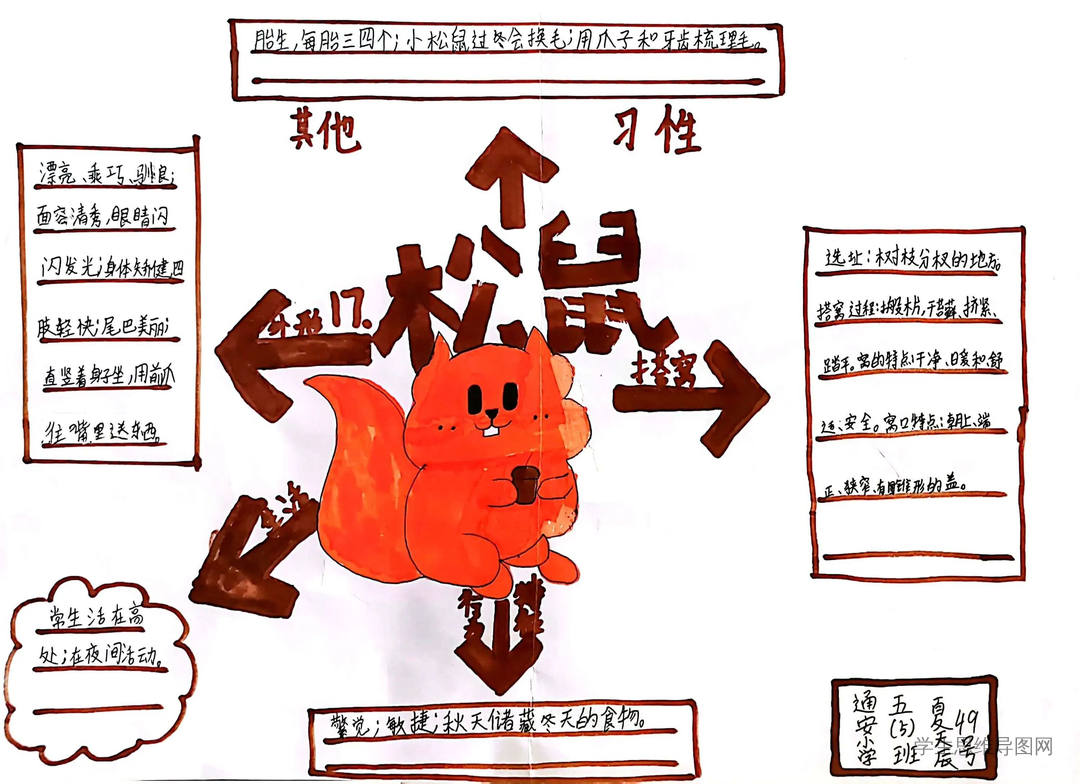 胎生，每胎三四个；小松鼠过冬会换毛；用爪子和牙齿梳理毛。
其他 习性
漂亮、乖巧、驯良；
面容清秀，眼睛闪
闪发光；身体矫健，四
肢轻快；尾巴美丽；
直竖着身子坐，用前爪
往嘴里送东西。
松鼠
外形
搭窝
选址：树枝分杈的地方。
搭窝过程：搬木片，干苔藓、挤紧、
踏平。窝的特点：干净、暖和、舒
适、安全。窝口特点：朝上、端
正、狭窄，有圆锥形的盖。
常生活在高
处；在夜间活动。
警觉；敏捷；秋天储藏冬天的食物。
通安小学
五(5)班
夏天辰
49号
学生思维导图网